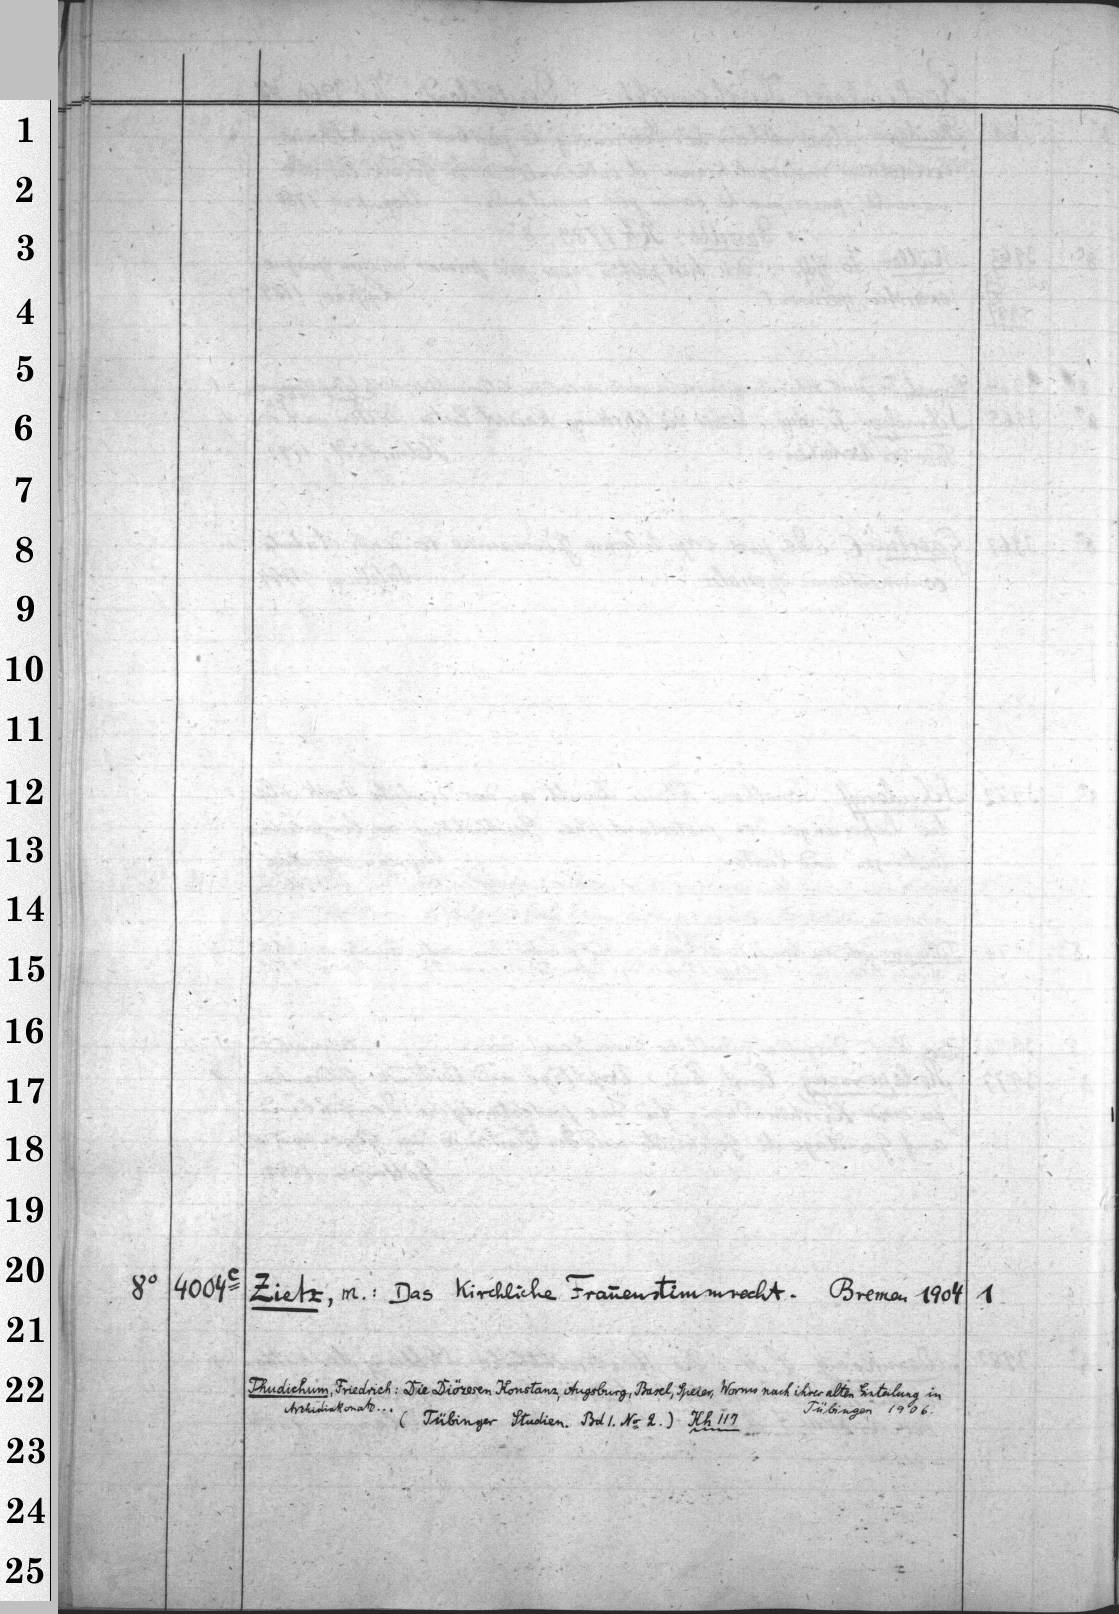 1
2
3
4
5
6
7
8
9
10
11
12
13
14
15
16
17
18
19
20
8° 4004c Zietz, M.: Das Kirchliche Frauenstimmrecht. Bremen 1904 1
21
22
Thudichum, Friedrich: Die Diözesen Konstanz, Augsburg, Basel, Speier, Worms nach ihrer alten Einteilung in
Archidiakonate... Tübingen 1906.
(Tübinger Studien. Bd 1. No 2.) Kh 117
23
24
25